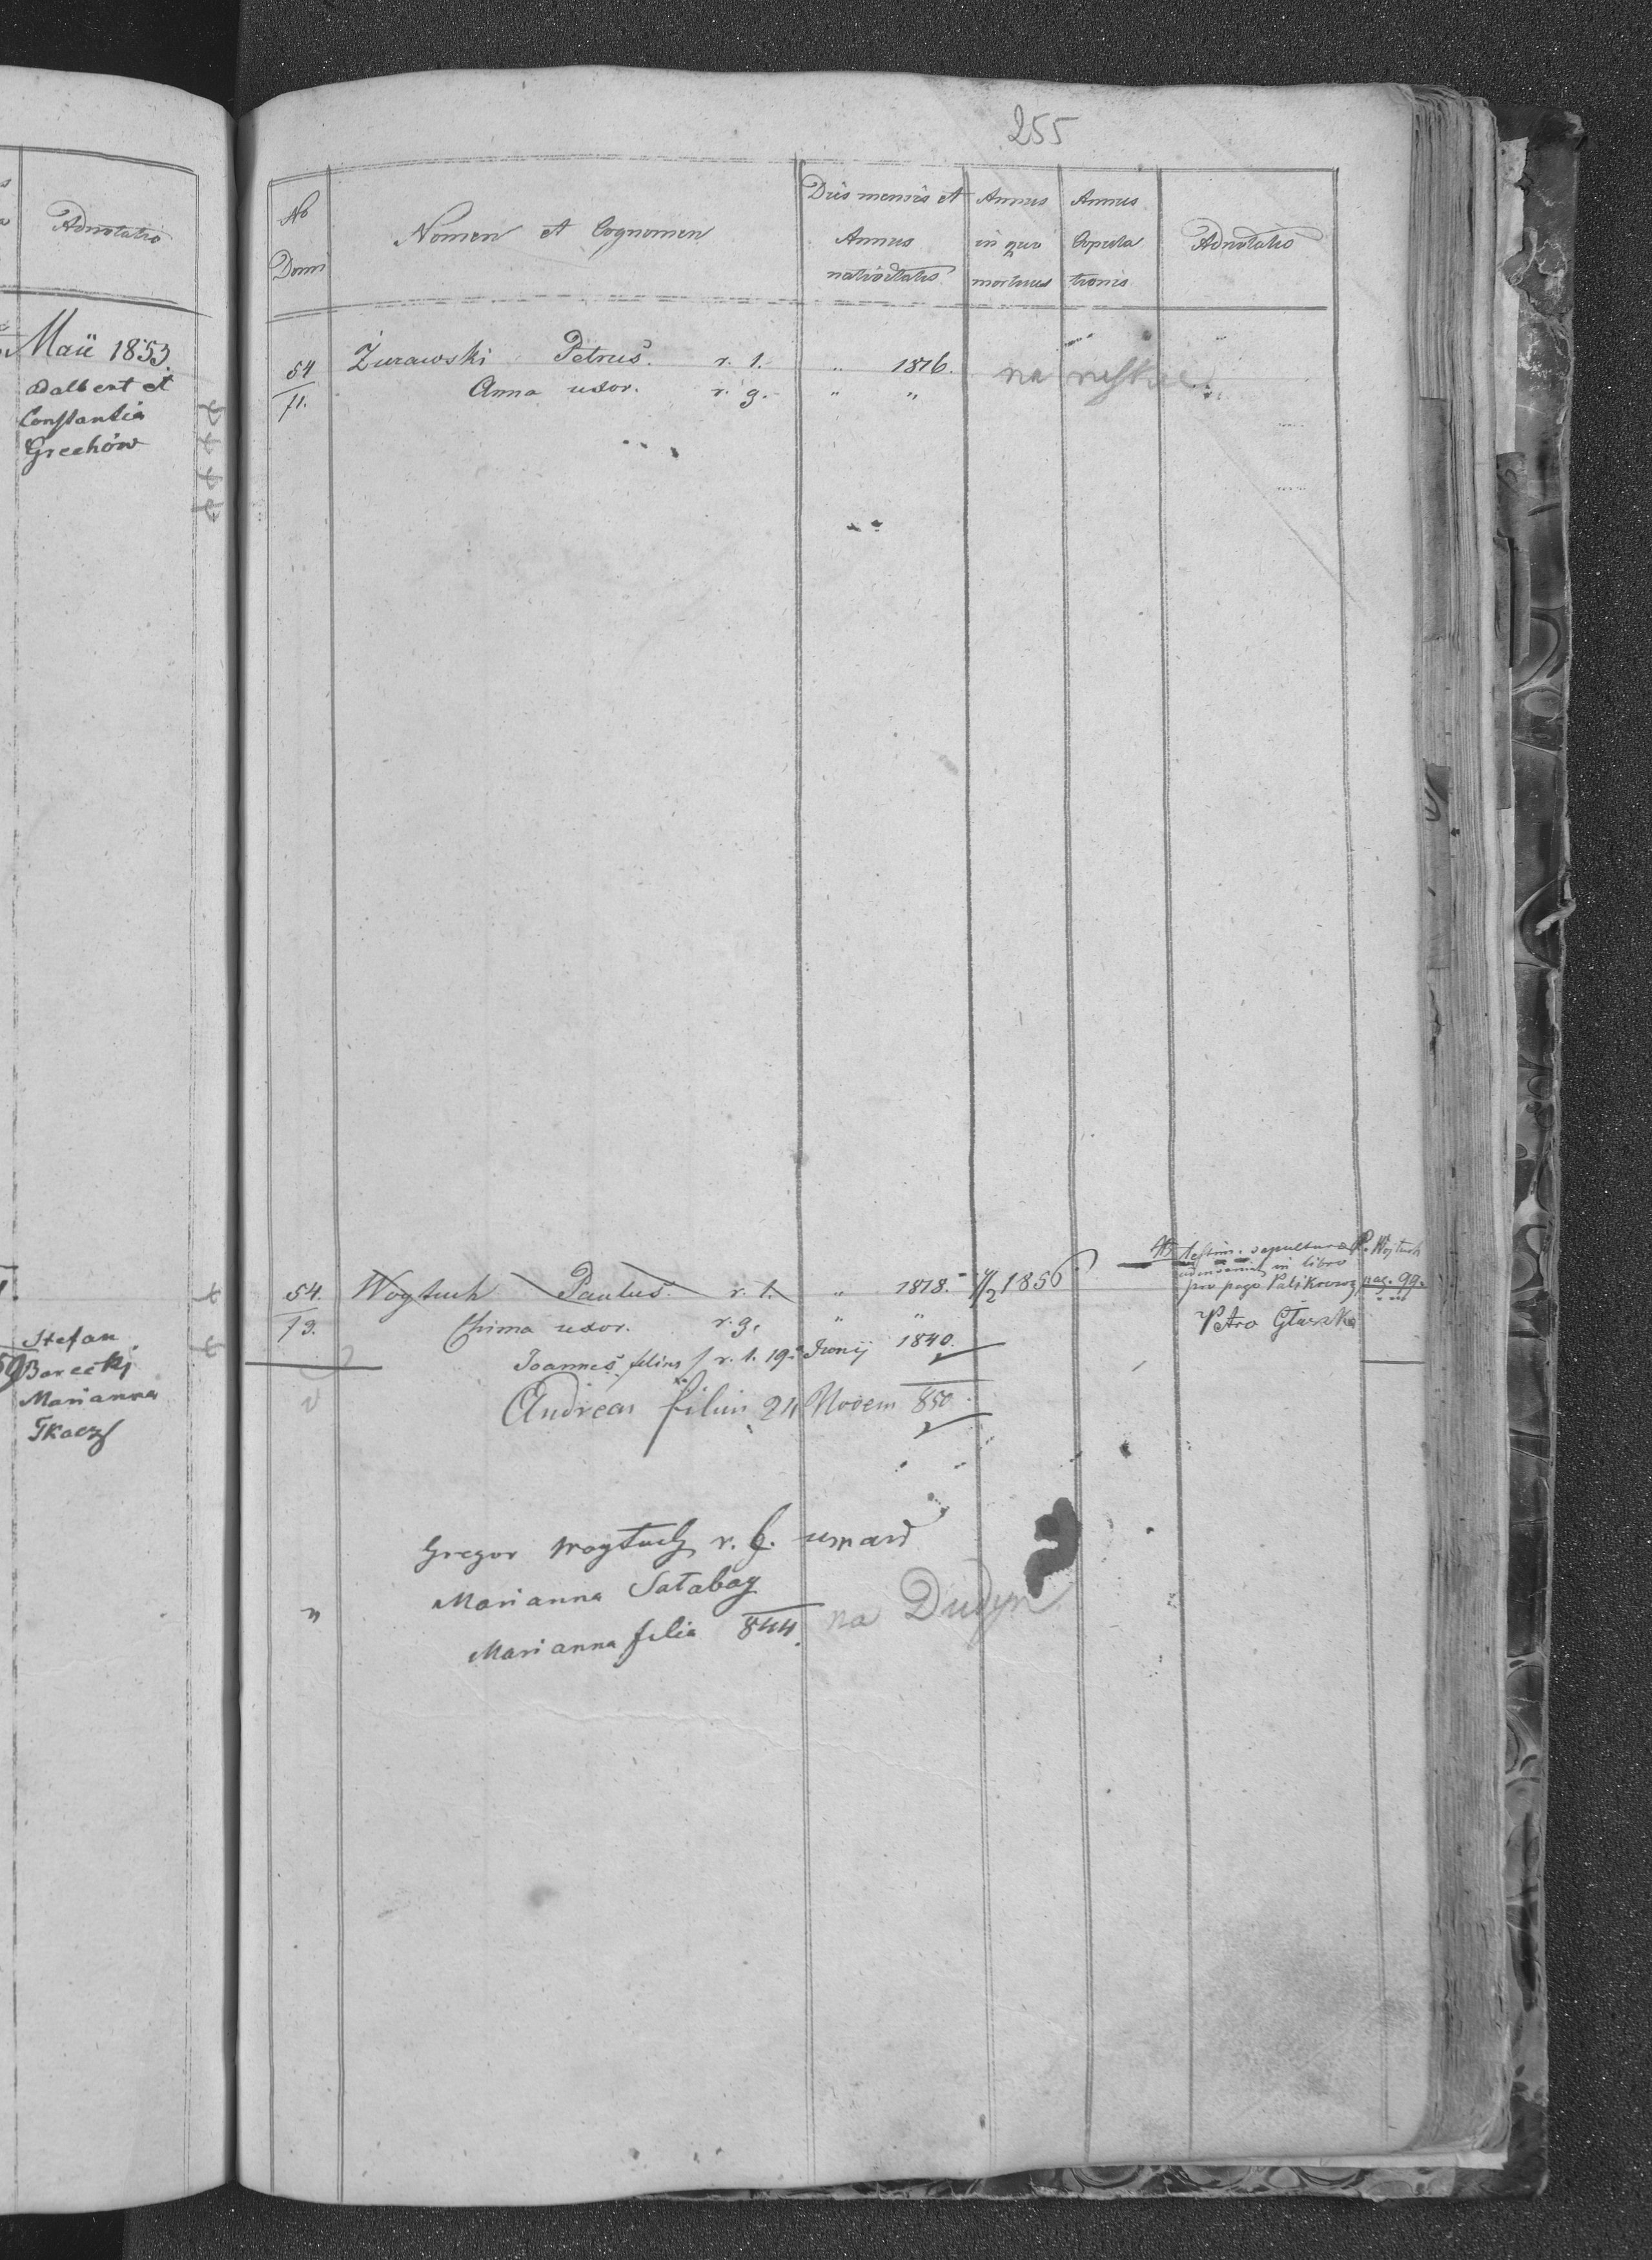 255
Adnotatio
Maii 1853
Adalbert et
Constantia
Grechów
Stefan
Barecki
Marianna
Tkacz
No Domi
Nomen et Cognomen
Dies mensis et Annus nativitatis
Annus in quo mortuus
Annus Copulationis
Adnotatio
54/71. Żurawski Petrus. r. l. " 1816.
Anna uxor. r. g. " "
na
54./73. Woytuch Paulus. r. l. " 1818. 4/2 1856
testim. sepulturae P. Wojtuch
in libro
pro pago Palikrowy pag. 99.
Petro Głuszko
Chima uxor. r. g. " "
Joannes filius r. l. 19 Junij 1840.
Andreas filius 24 Novem 850
Gregor Woytuch r. g.
Marianna Sałabay
Marianna filia 844. na Dudyn